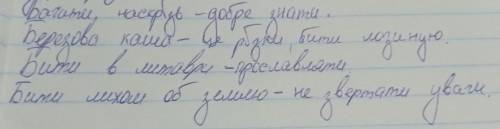 Багати, насорузь - добре знати.
Березова каша - це різки, бити лозиною.
Бити в литаври - прославляти.
Бити лихом об землю - не звертати уваги.